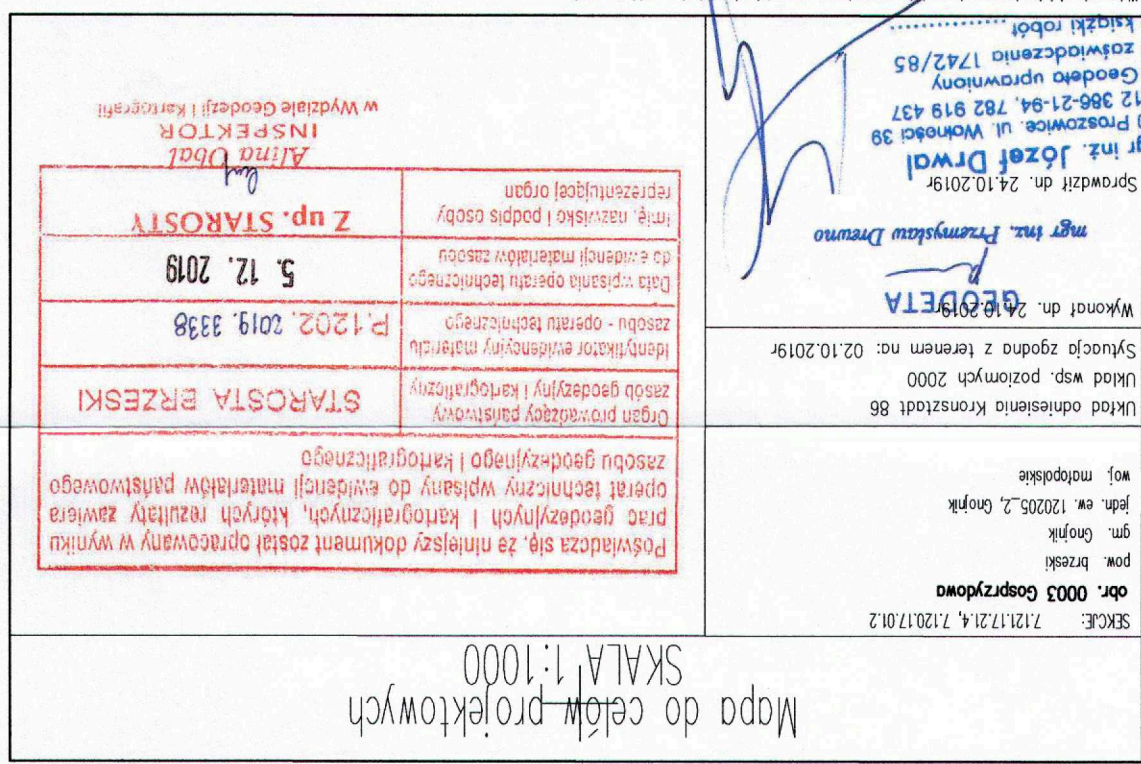 Mapa do celów projektowych
SKALA 1:1000
SEKCJE: 7.121.17.21.4, 7.120.17.01.2
obr. 0003 Gosprzydowa
pow. brzeski
gm. Gnojnik
jedn. ew. 120205_2, Gnojnik
woj. małopolskie
Układ odniesienia Kronsztadt 86
Układ wsp. poziomych 2000
Sytuacja zgodna z terenem na: 02.10.2019r
Wykonał dn. 24.10.2019r
GEODETA
mgr inż. Przemysław Drewno
Sprawdził dn. 24.10.2019r
gr inż. Józef Drwal
Proszowice, ul. Wolności 39
12 386-21-94, 782 919 437
Geodeta uprawniony
zaświadczenia 1742/85
książki robót ................
Poświadcza się, że niniejszy dokument został opracowany w wyniku
prac geodezyjnych i kartograficznych, których rezultaty zawiera
operat techniczny wpisany do ewidencji materiałów państwowego
zasobu geodezyjnego i kartograficznego
Organ prowadzący państwowy
zasób geodezyjny i kartograficzny
STAROSTA BRZESKI
Identyfikator ewidencyjny materiału
zasobu - operatu technicznego
P.1202. 2019. 3338
Data wpisania operatu technicznego
do ewidencji materiałów zasobu
5. 12. 2019
imię, nazwisko i podpis osoby
reprezentującej organ
Z up. STAROSTY
Alina Obal
INSPEKTOR
w Wydziale Geodezji i Kartografii